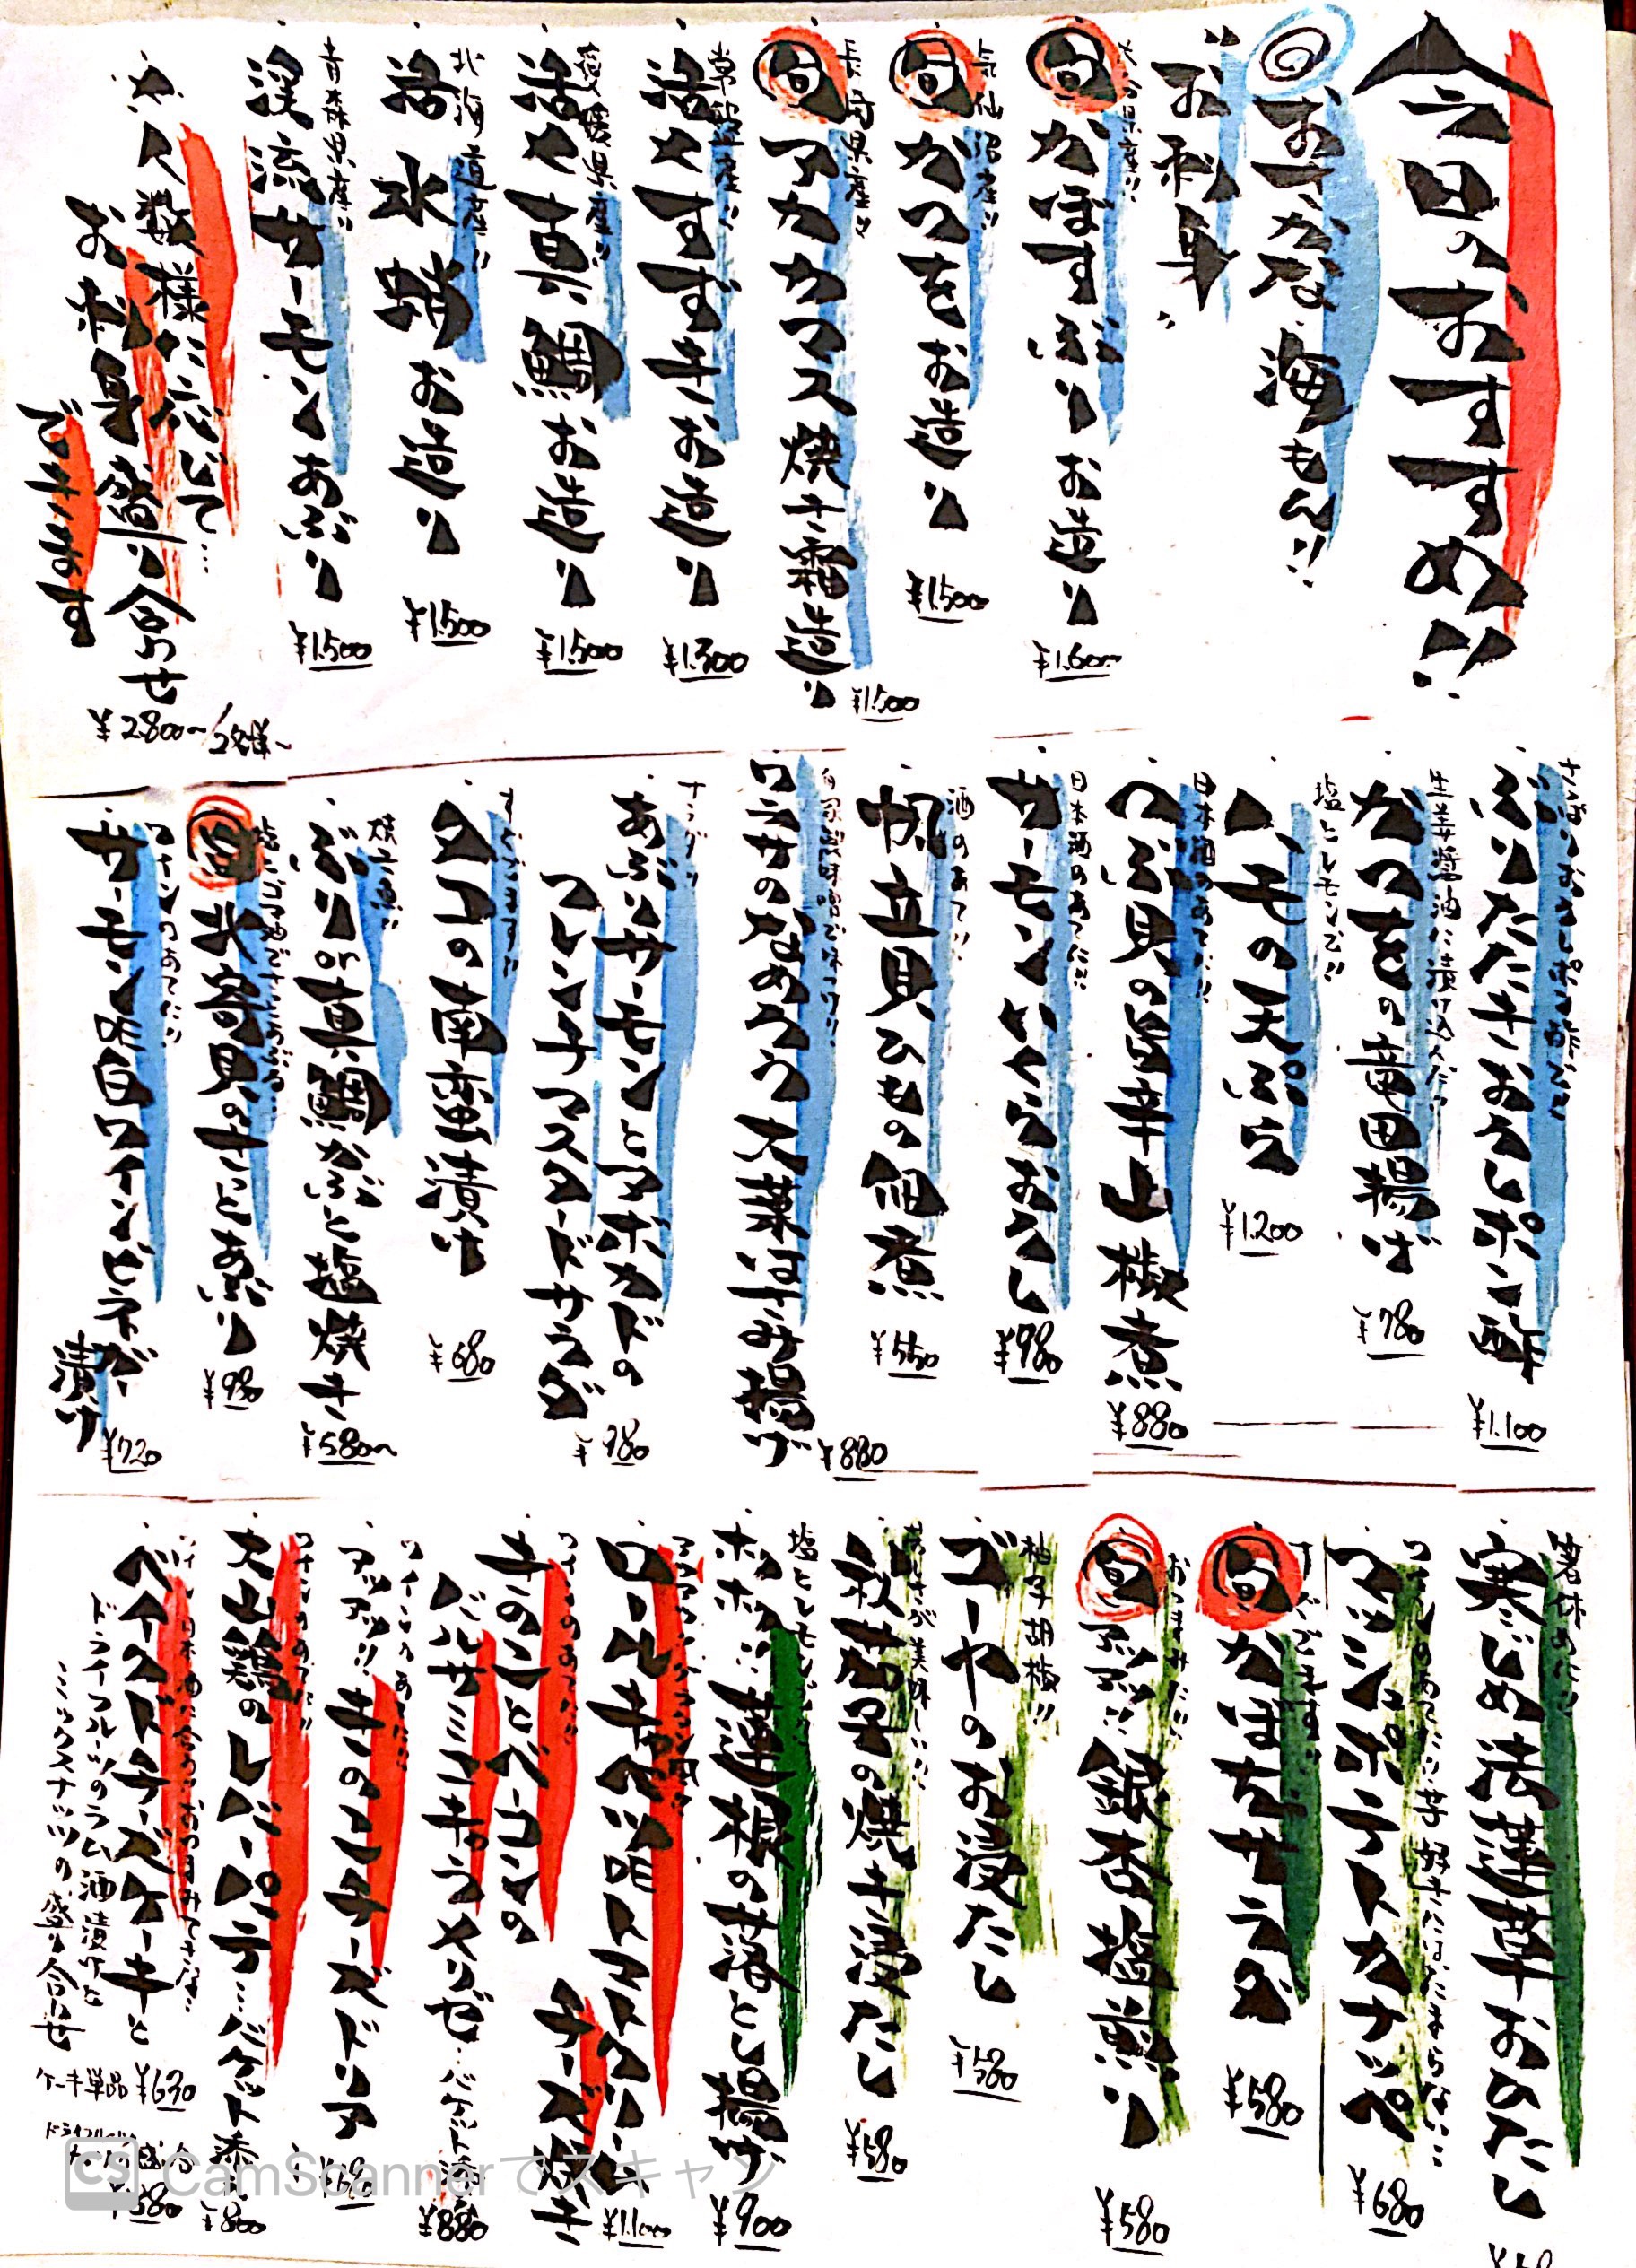 今日のおすすめ!!
おさかな 海もん!!
"お刺身"
大分県産!!
旬 かぼすぶりお造り
¥1.600
気仙沼産!!
旬 かつをお造り
¥1.500
長崎県産!!
旬 アカカマス焼き霜造り
¥1.500
常磐産!!
活〆すずきお造り
¥1.500
愛媛県産!!
活〆真鯛お造り
¥1.500
北海道産!!
活水蛸お造り
¥1.500
青森県産!!
渓流サーモンあぶり
¥1.500
人数様に応じて…
お刺身盛り合わせ
できます
¥2.800〜/2名様〜
ぶりたたきおろしポン酢
¥1.100
生姜醤油に漬け込んだ!!
かつをの竜田揚げ
¥780
塩とレモンで!!
ハモの天ぷら
¥1.200
日本酒のあてに!!
つぶ貝の旨辛山椒煮
¥880
日本酒のあてに!!
サーモンいくらおろし
¥980
酒のあて!!
帆立貝ひもの佃煮
¥550
自家製味噌で味つけ!!
ワラサのなめろう大葉はさみ揚げ
¥880
あぶりサーモンとアボカドの
フレンチマスタードサラダ
¥980
すぐでます!!
タコの南蛮漬け
¥680
焼き魚!!
ぶりor真鯛かぶと塩焼き
¥580〜
塩とゴマ油でさっとあぶる…
旬 北寄貝のさっとあぶり
¥980
ワインのあてに!!
サーモン白ワインビネガー漬け
¥720
箸休めに!!
寒じめ法蓮草おひたし
マッシュポテトカナッペ
¥680
すぐでます!!
旬 かぼちゃサラダ
¥580
おつまみに!!
旬 銀杏塩煎り
¥580
柚子胡椒!!
ゴーヤのお浸たし
¥580
秋茄子の焼き浸たし
¥580
塩とレモンで!!
ホクホク!!蓮根の落とし揚げ
¥900
アツアツ!!グラタン風!!
ロールキャベツトマトクリーム
チーズ焼き
¥1.100
ワインのあてに!!
きのことベーコンの
バルサミコキャラメリゼ…バケット添え
¥880
ワインのあてに!!
アツアツ!!きのこチーズドリア
ワインのあてに!!
大山鶏のレバーパテ…バケット添え
¥800
ベイクドチーズケーキと
ドライフルーツのラム酒漬けと
ミックスナッツの盛り合わせ
ケーキ単品 ¥630
¥580
CS CamScannerでスキャン